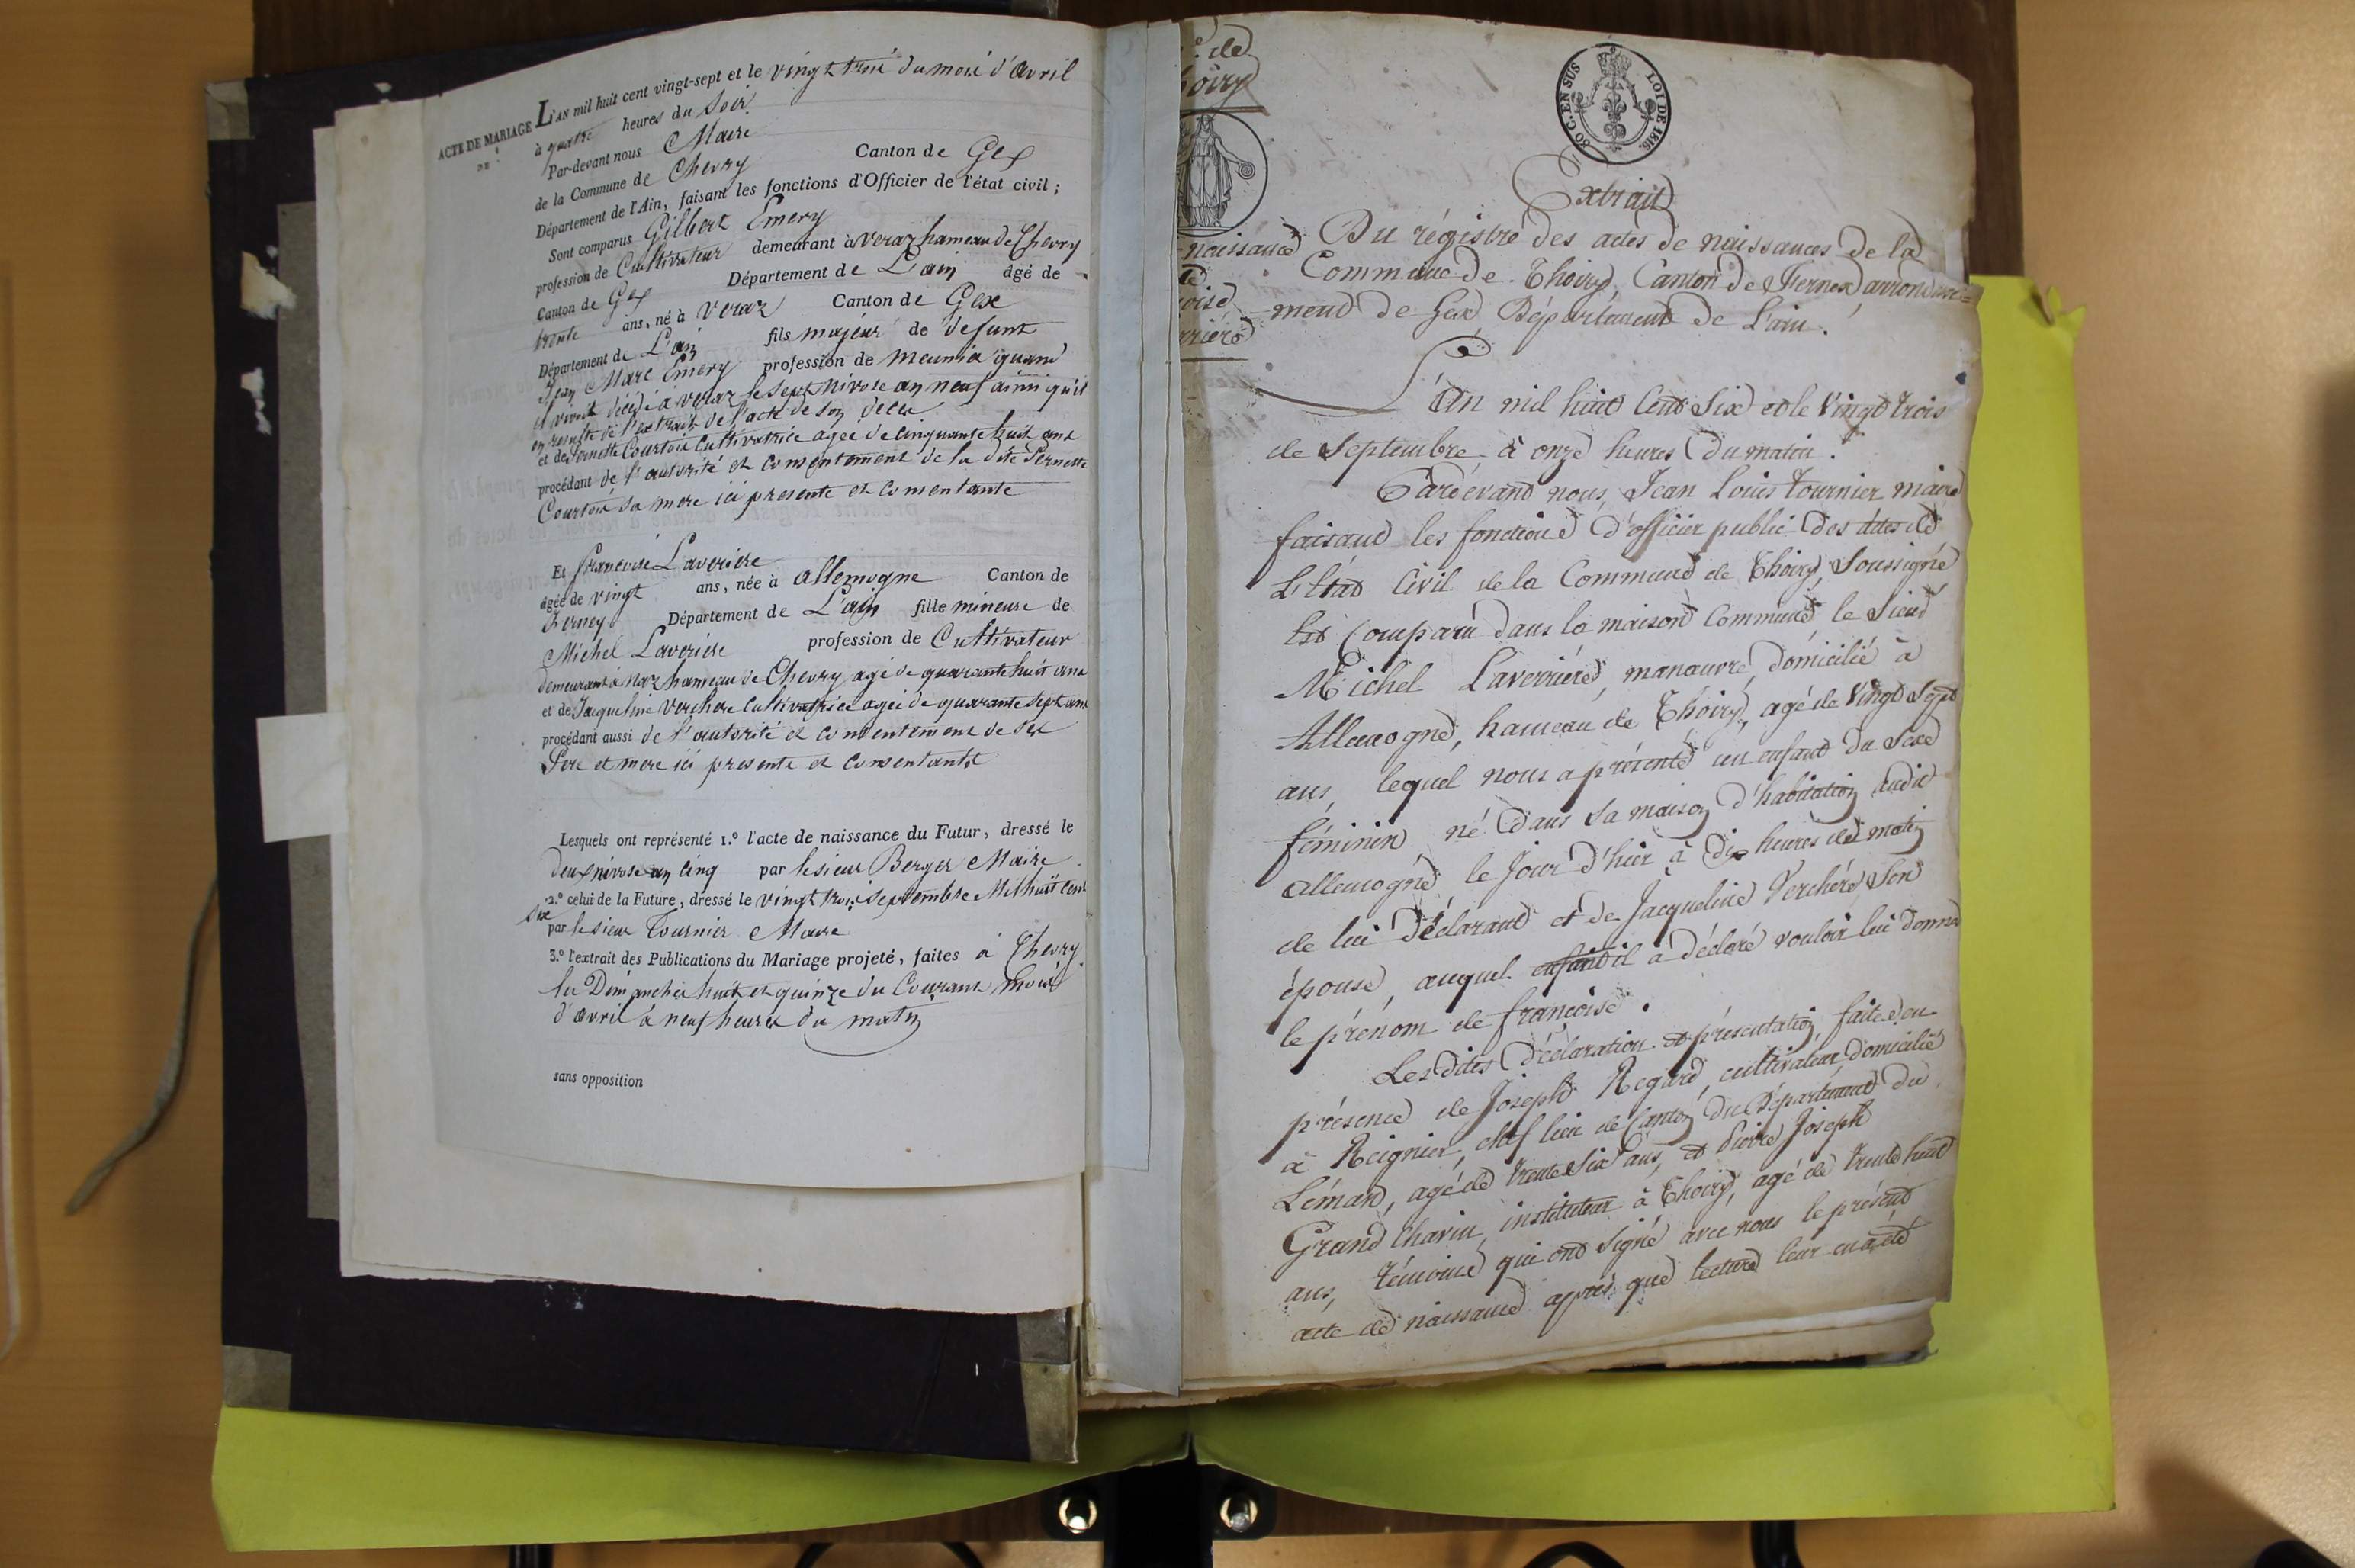 ACTE DE MARIAGE
DE
L'AN mil huit cent vingt-sept et le vingt trois du mois d'avril
à quatre heures du soir
Par-devant nous Maire
de la Commune de Chevry Canton de Gex
Département de l'Ain, faisant les fonctions d'Officier de l'état civil ;
Sont comparus Gilbert Emery
profession de Cultivateur demeurant à veraz hameau de Chevry
Canton de Gex Département de L'ain âgé de
trente ans, né à Veraz Canton de Gex
Département de L'ain fils majeur de défunt
Jean Marc Emery profession de meunier quand
il vivoit décédé à veraz le sept nivose an neuf ainsi qu'il
en resulte de l'extrait de l'acte de son décès
et de Pernette Courtois Cultivatrice agée de cinquante huit ans
procédant de l'autorité et consentement de la dite Pernette
Courtois sa mere ici presente et consentante
Et francoise Laveriere
âgée de vingt ans, née à allemogne Canton de
ferney Département de L'ain fille mineure de
Michel Laveriere profession de Cultivateur
demeurant à Naz hameau de Chevry agé de quarante huit ans
et de Jacqueline Verchere Cultivatrice agée de quarante sept ans
procédant aussi de l'autorité et consentement de ses
Pere et mere ici presents et consentants
Lesquels ont représenté 1.º l'acte de naissance du Futur, dressé le
deux nivose an cinq par le sieur Berger Maire
2.º celui de la Future, dressé le vingt trois septembre Mil huit cent
six
par le sieur Tournier Maire
3.º l'extrait des Publications du Mariage projeté, faites à Chevry
les Dimanches huit et quinze du Courant mois
d'avril à neuf heures du matin
sans opposition
de
hoiry
naissance
30 C. EN SUS
LOI DE 1816.
Extrait
Du régistre des actes de naissances de la
Commune de Thoiry, Canton de Fernex, arrondisse=
ment de Gex Département de L'ain.
L'An mil huit Cent Six et le Vingt trois
de Septembre à onze heures du matin.
Pardevant nous, Jean Louis Tournier maire
faisant les fonctions d'officier public des actes de
L'Etat Civil de la Commune de Thoiry, Soussigné
Est Comparu dans la maison Commune le Sieur
Michel Laverrière, manœuvre, domicilié à
Allemogne, hameau de Thoiry, agé de Vingt Sept
ans, lequel nous a présenté un enfant du Sexe
féminin, né dans Sa maison d'habitation audit
allemogne le jour d'hier à dix heures de matin
de lui déclarant et de Jacqueline Verchère Son
épouse, auquel enfant il a déclaré vouloir lui donner
le prénom de françoise.
Les dites déclaration et présentation faites en
présence de Joseph Regard, cultivateur, domicilié
à Reignier, chef lieu de Canton du Département du
Léman, agé de trente Six ans, et Pierre Joseph
Grand Chavin, instituteur à Thoiry, agé de trente huit
ans, témoins qui ont Signé avec nous le présent
acte de naissance après que lecture leur en a été